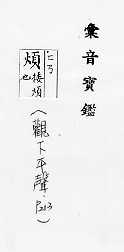 彙音寶鑑
煩 接煩也
(觀下平聲·P213)